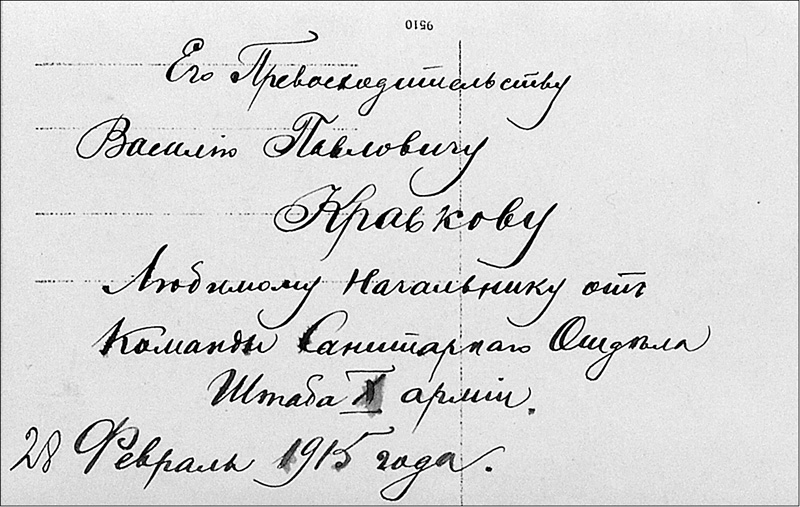 9510
Его Превосходительству
Василію Павловичу
Кравкову
Любимому Начальнику отъ
Команды Санитарнаго Отдѣла
Штаба X арміи.
28 Февраль 1915 года.